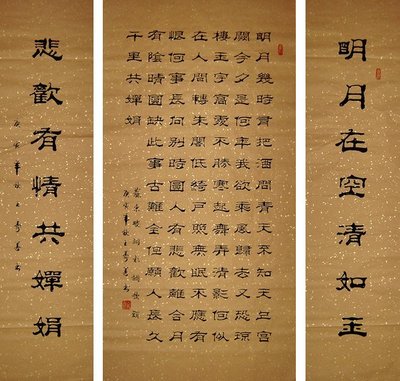 明月在空清如玉
明月幾時有把酒問青天不知天上宮
闕今夕是何年我欲乘風歸去又恐瓊
樓玉宇高處不勝寒起舞弄清影何似
在人間轉朱閣低綺戶照無眠不應有
恨何事長向別時圓人有悲歡離合月
有陰晴圓缺此事古難全但願人長久
千里共嬋娟
蘇東坡詞水調歌頭
庚寅年秋
悲歡有情共嬋娟
庚寅年秋